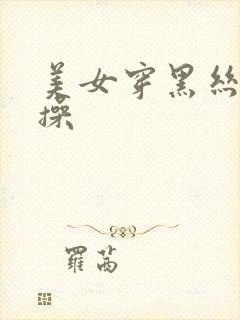 美女穿黑丝
操
羅茜